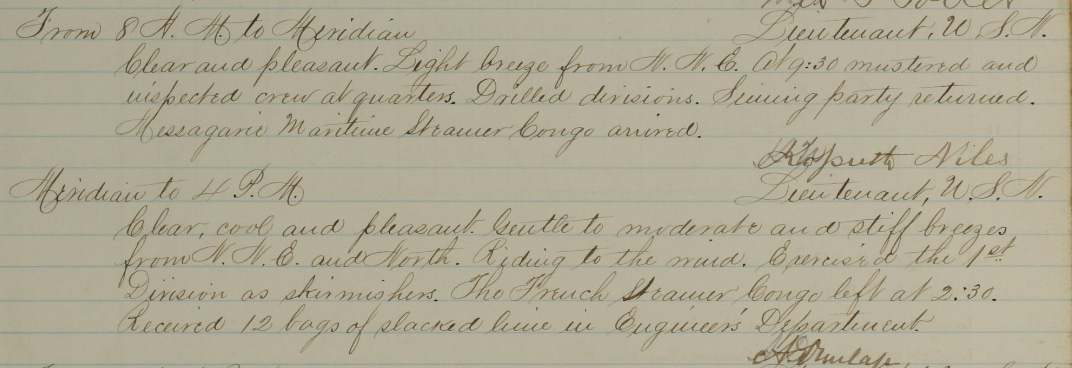 Lieutenant, U.S.N.
From 8 A.M. to Meridian
Clear and pleasant. Light breeze from N.N.E. At 9:30 mustered and
inspected crew at quarters. Drilled divisions. Seining party returned.
Messagarie Maritime Steamer Congo arrived.
Kossuth Niles
Lieutenant, U.S.N.
Meridian to 4 P.M.
Clear, cool and pleasant. Gentle to moderate and stiff breezes
from N.N.E. and North. Riding to the wind. Exercised the 1st
Division as skirmishers. The French Steamer Congo left at 2:30.
Received 12 bags of slacked lime in Engineers' Department.
Dunlap